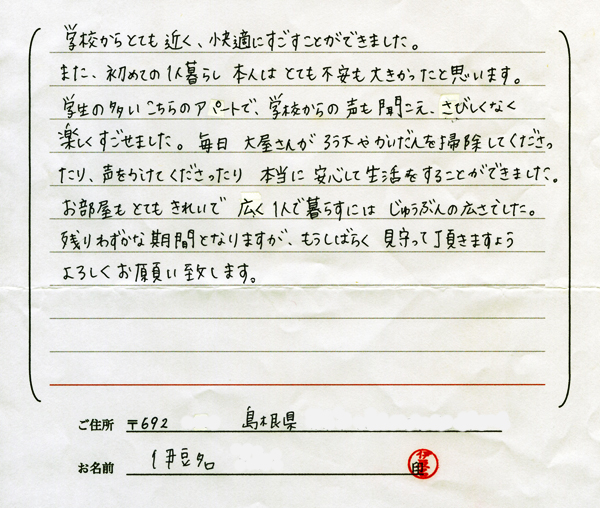 学校からとても近く、快適にすごすことができました。
また、初めての1人暮らし 本人はとても不安も大きかったと思います。
学生の多いこちらのアパートで、学校からの声も聞こえ、さびしくなく
楽しくすごせました。毎日 大屋さんがろう下やかいだんを掃除してくださっ
たり、声をかけてくださったり 本当に安心して生活をすることができました。
お部屋もとてもきれいで 広く1人で暮らすには じゅうぶんの広さでした。
残りわずかな期間となりますが、もうしばらく 見守って頂きますよう
よろしくお願い致します。
ご住所 〒692 島根県
お名前 伊豆名